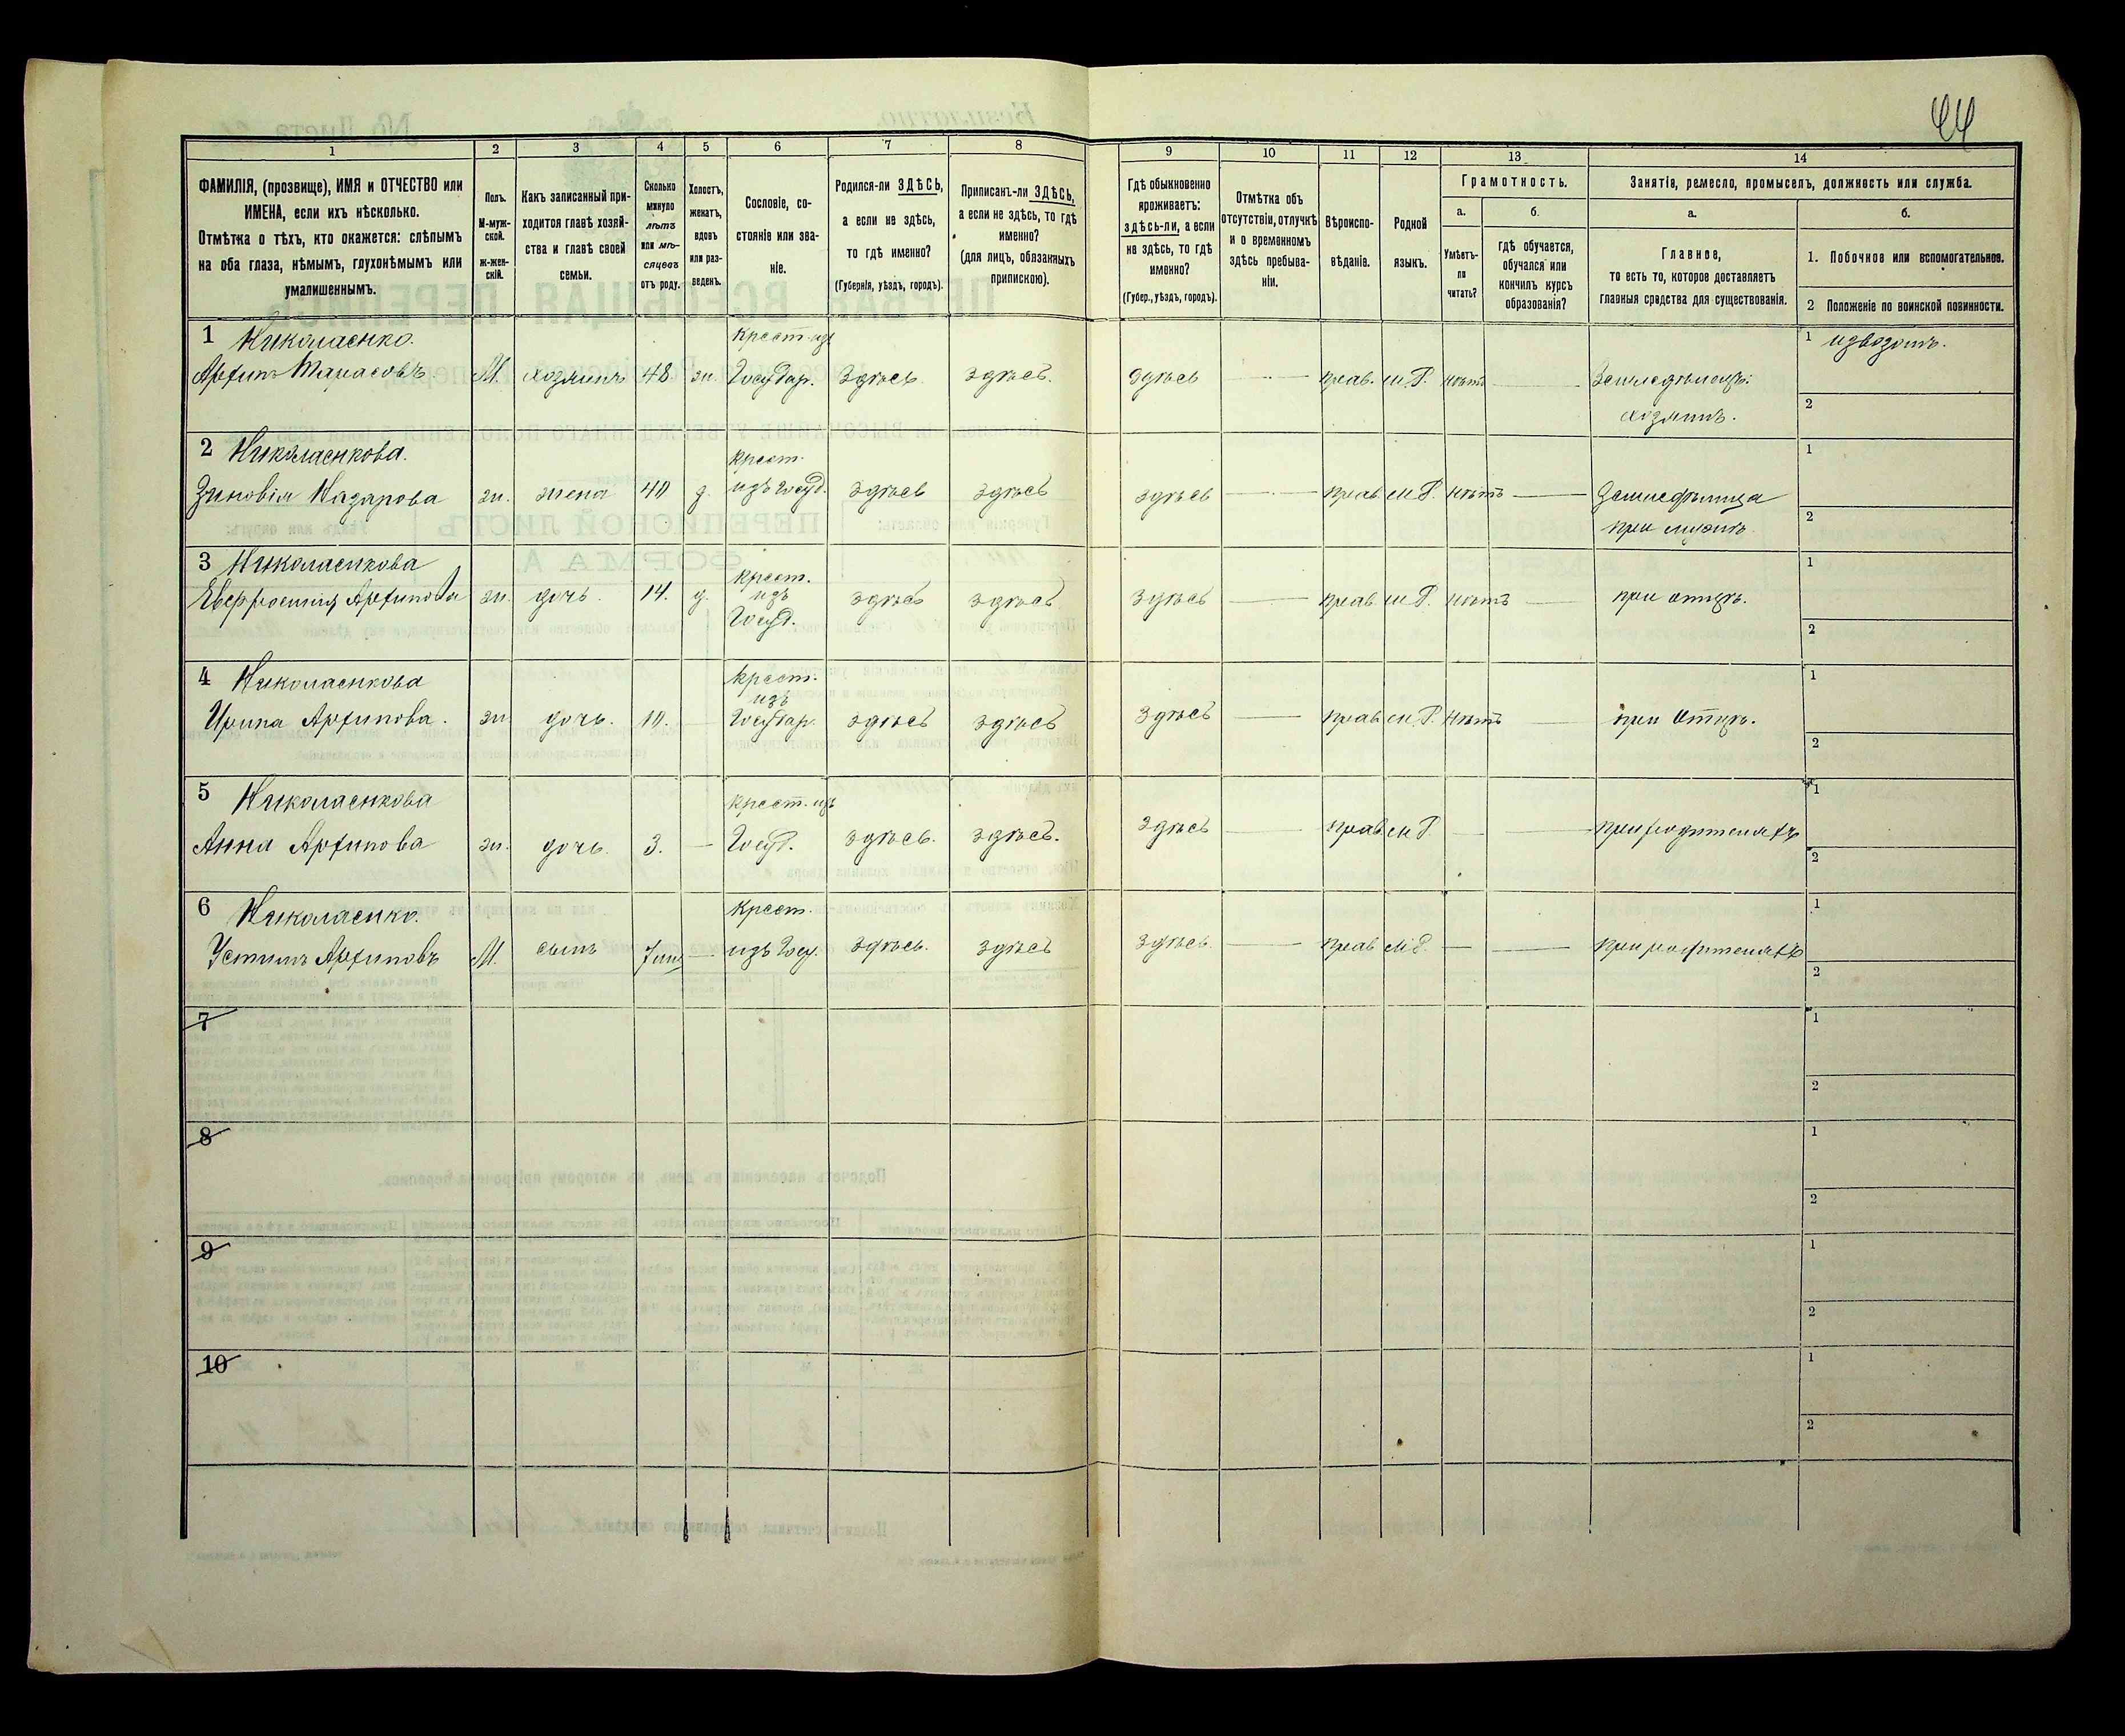 44
1
2
3
4
5
6
7
8
9
10
11
12
13
14
ФАМИЛІЯ, (прозвище), ИМЯ и ОТЧЕСТВО или
ИМЕНА, если ихъ нѣсколько.
Отмѣтка о тѣхъ, кто окажется: слѣпымъ
на оба глаза, нѣмымъ, глухонѣмымъ или
умалишеннымъ.
Полъ.
М-муж-
ской.
Ж-жен-
скій.
Какъ записанный при-
ходится главѣ хозяй-
ства и главѣ своей
семьи.
Сколько
минуло
лѣтъ
или мѣ-
сяцевъ
отъ роду.
Холостъ,
женатъ,
вдовъ
или раз-
веденъ.
Сословіе, со-
стояніе или зва-
ніе.
Родился-ли ЗДѢСЬ,
а если не здѣсь,
то гдѣ именно?
(Губернія, уѣздъ, городъ).
Приписанъ-ли ЗДѢСЬ,
а если не здѣсь, то гдѣ
именно?
(для лицъ, обязанныхъ
припискою).
Гдѣ обыкновенно
проживаетъ:
здѣсь-ли, а если
не здѣсь, то гдѣ
именно?
(Губер., уѣздъ, городъ).
Отмѣтка объ
отсутствіи, отлучкѣ
и о временномъ
здѣсь пребыва-
ніи.
Вѣроиспо-
вѣданіе.
Родной
языкъ.
Грамотность.
а.
Умѣетъ-
ли
читать?
б.
гдѣ обучается,
обучался или
кончилъ курсъ
образованія?
Занятіе, ремесло, промыселъ, должность или служба.
а.
Главное,
то есть то, которое доставляетъ
главныя средства для существованія.
б.
1. Побочное или вспомогательное.
2 Положеніе по воинской повинности.
1 Николаенко.
Архипъ Танасовъ
М. хозяинъ 48 ж. Крест. изъ Государ. Здѣсь здѣсь. здѣсь — прав. м.Р. нѣтъ — Земледѣлецъ. хозяинъ.
1 извозомъ.
2
2 Николаенкова.
Зиновія Назарова
ж. жена 40 з. крест. изъ Госуд. здѣсь здѣсь здѣсь — прав. м.Р. нѣтъ — Земледѣлица при мужѣ
1
2
3 Николаенкова
Евфросинія Архипова
ж. дочь. 14. д. крест. изъ Госуд. здѣсь здѣсь здѣсь — прав. м.Р. нѣтъ — при отцѣ.
1
2
4 Николаенкова
Ирина Архипова.
ж. дочь. 10. — крест. изъ Государ. здѣсь здѣсь здѣсь — прав. м.Р. нѣтъ — при отцѣ.
1
2
5 Николаенкова
Анна Архипова
ж. дочь 3. — крест. изъ Госуд. здѣсь. здѣсь. здѣсь — прав. м.Р. — — при родителяхъ
1
2
6 Николаенко.
Устимъ Архиповъ
М. сынъ — Крест. изъ Госу. здѣсь. здѣсь здѣсь. — прав м.Р. — — при родителяхъ
1
2
7
1
2
8
1
2
9
1
2
10
1
2